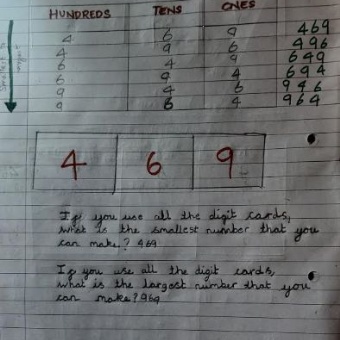 HUNDREDS TENS ONES
4 6 9 469
4 9 6 496
6 4 9 649
6 9 4 694
9 4 6 946
9 6 4 964
4 6 9
If you use all the digit cards,
what is the smallest number that you
can make? 469
If you use all the digit cards,
what is the largest number that you
can make? 964